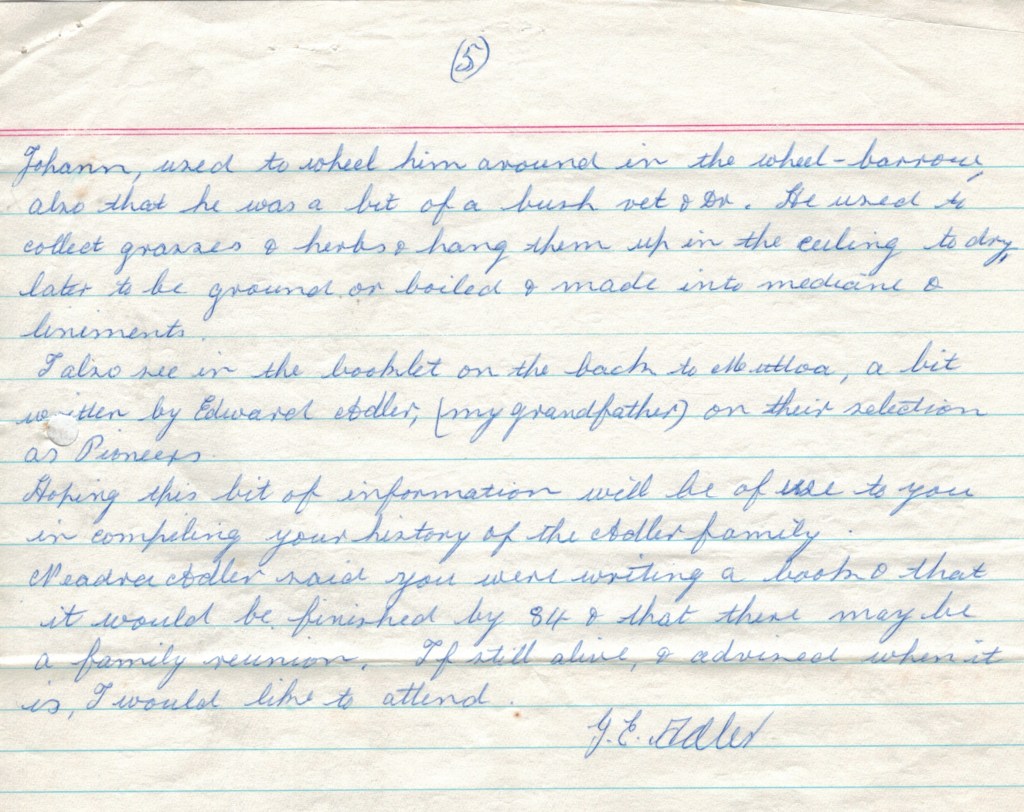 5
Johann, used to wheel him around in the wheel-barrow,
also that he was a bit of a bush vet & Dr. He used to
collect grasses & herbs & hang them up in the ceiling to dry,
later to be ground or boiled & made into medicine &
liniments.
I also see in the booklet on the back to Murtoa, a bit
written by Edward Adler, (my grandfather) on their selection
as Pioneers.
Hoping this bit of information will be of use to you
in compiling your history of the Adler family.
Neadra Adler said you were writing a book & that
it would be finished by 84 & that there may be
a family reunion. If still alive, & advised when it
is, I would like to attend.
G.E. Adler